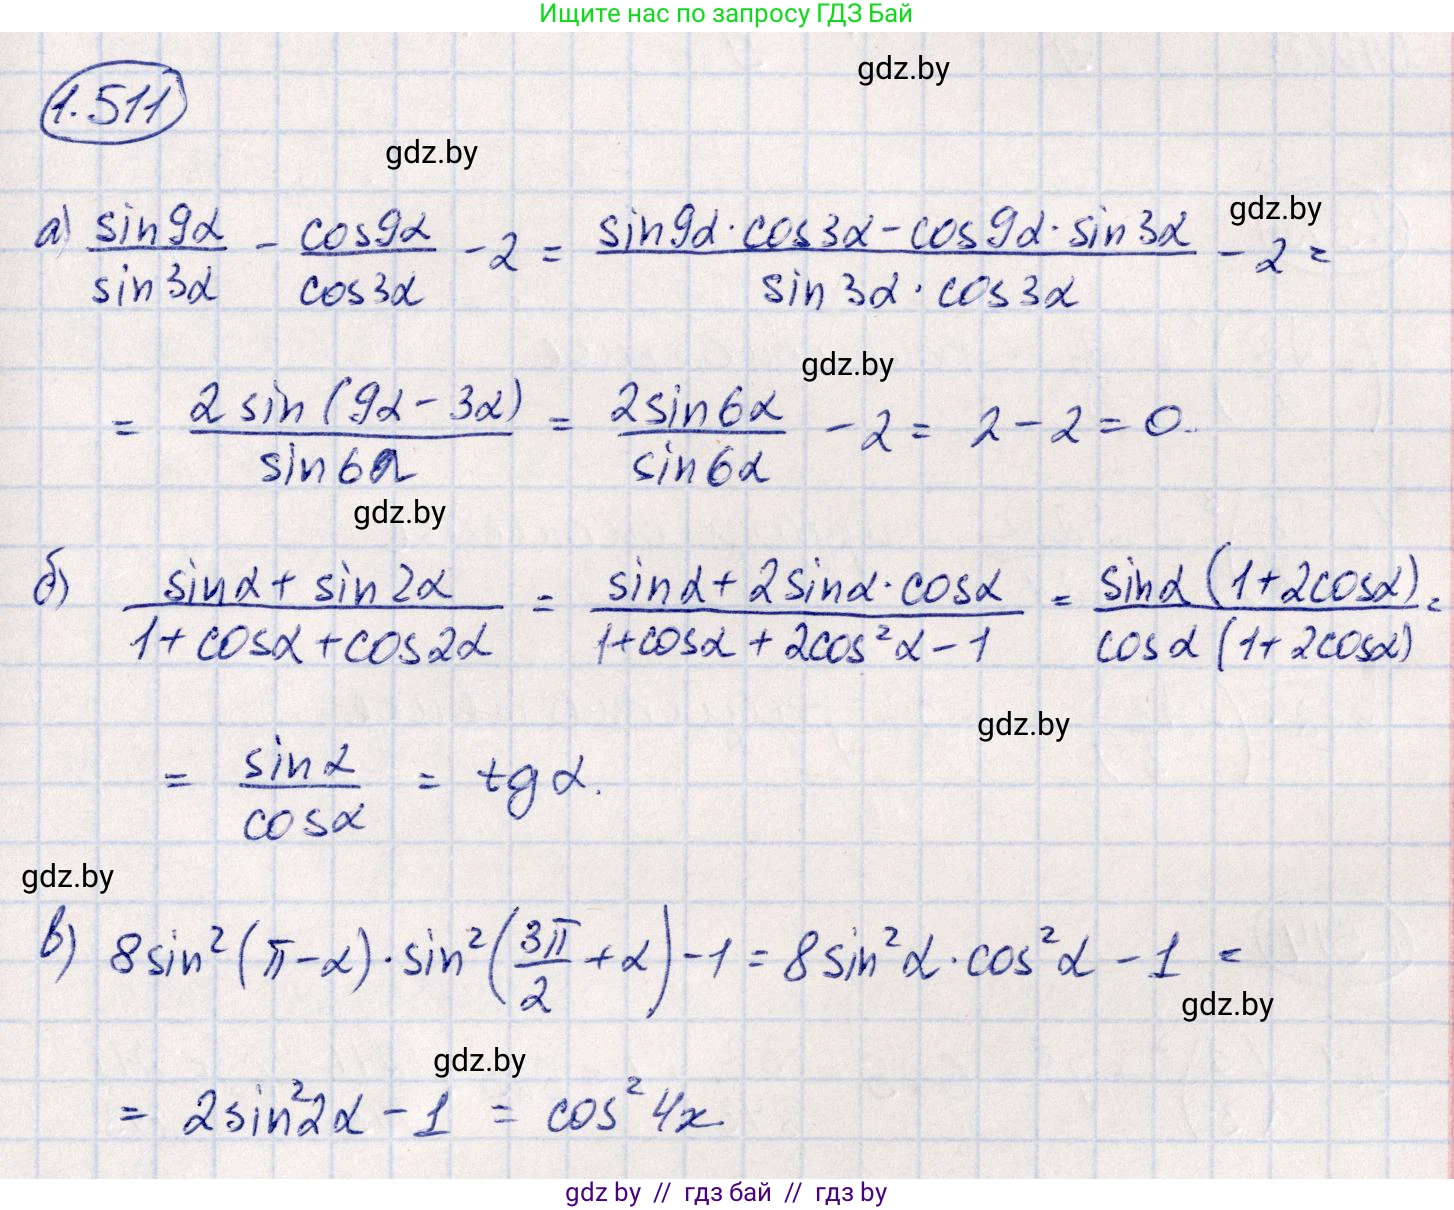 Ищите нас по запросу ГДЗ Бай
gdz.by
1.511
gdz.by
gdz.by
а) sin9α/sin3α - cos9α/cos3α - 2 = (sin9α · cos3α - cos9α · sin3α)/(sin3α · cos3α) - 2 =
gdz.by
= 2 sin(9α - 3α)/sin6α = 2sin6α/sin6α - 2 = 2 - 2 = 0.
gdz.by
б) (sinα + sin2α)/(1 + cosα + cos2α) = (sinα + 2sinα · cosα)/(1 + cosα + 2cos²α - 1) = sinα (1 + 2cosα)/cosα (1 + 2cosα) =
gdz.by
= sinα/cosα = tgα.
gdz.by
в) 8sin²(π - α) · sin²(3π/2 + α) - 1 = 8sin²α · cos²α - 1 =
gdz.by
gdz.by
= 2sin²2α - 1 = cos²4x
gdz by // гдз бай // гдз by